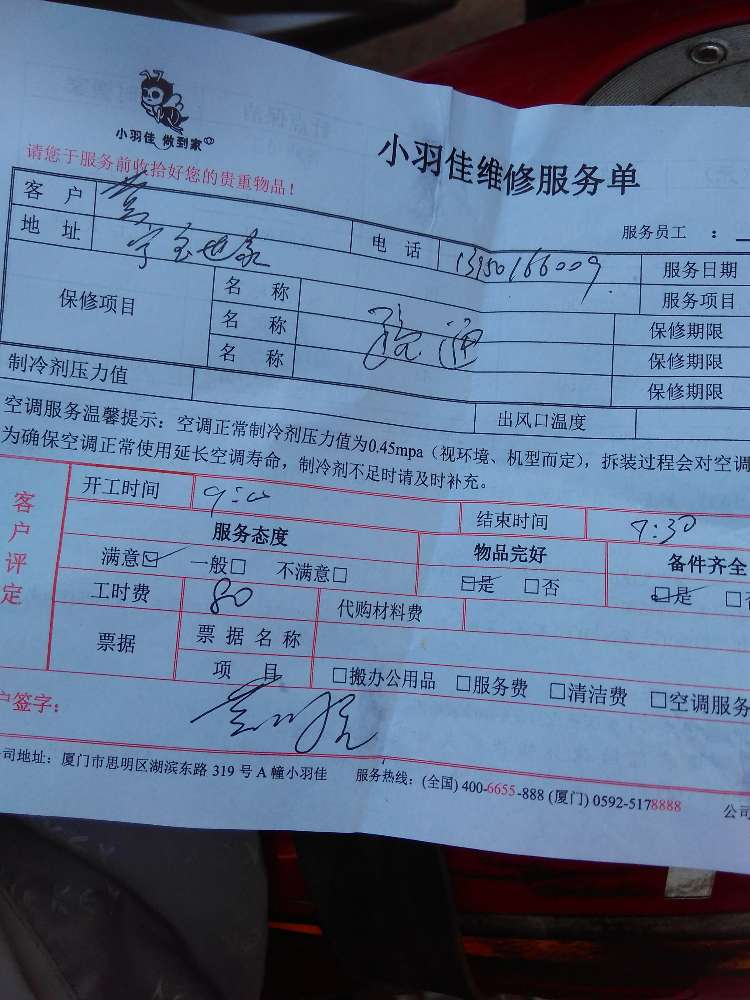 小羽佳 做到家
小羽佳维修服务单
请您于服务前收拾好您的贵重物品！
服务员工 ：
客 户
电 话 13950166009 服务日期
地 址
服务项目
保修项目 名 称 保修期限
名 称 疏通 保修期限
名 称 保修期限
制冷剂压力值 出风口温度
空调服务温馨提示：空调正常制冷剂压力值为0.45mpa（视环境、机型而定），拆装过程会对空调
为确保空调正常使用延长空调寿命，制冷剂不足时请及时补充。
客户评定
开工时间 9:00 结束时间 9:30
服务态度 物品完好 备件齐全
满意☑ 一般□ 不满意□ ☑是 □否 ☑是 □否
工时费 80 代购材料费
票据 票 据 名 称
项 目 □搬办公用品 □服务费 □清洁费 □空调服务
户签字：
司地址：厦门市思明区湖滨东路 319 号 A 幢小羽佳 服务热线：(全国) 400-6655-888 (厦门) 0592-5178888 公司